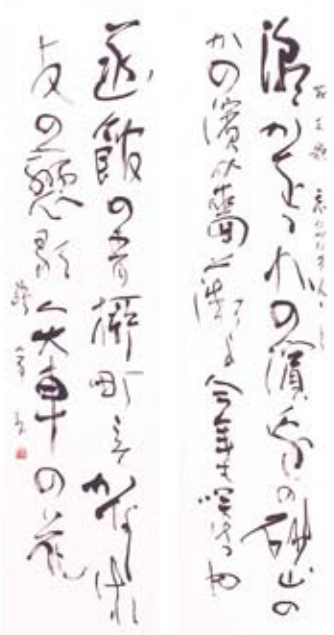 潮かをる北の濱邊の砂山の
かの濱薔薇よ今年も咲けるや
函館の青柳町こそかなしけれ
友の戀歌矢車の花